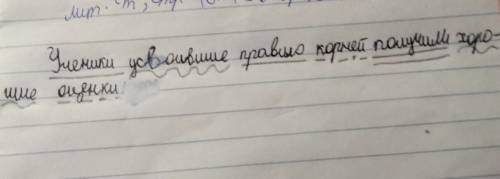 Ученики усвоившие правило корней получили хоро-
шие оценки